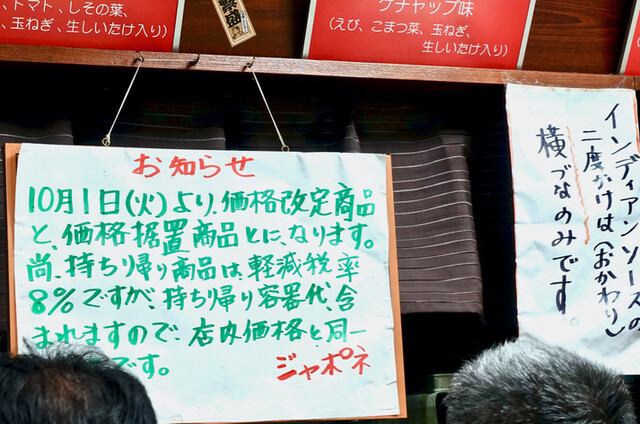 、トマト、しその葉、
、玉ねぎ、生しいたけ入り）
ケチャップ味
（えび、こまつ菜、玉ねぎ、
生しいたけ入り）
お知らせ
10月1日(火)より、価格改定商品
と、価格据置商品とに、なります。
尚、持ち帰り商品は、軽減税率
8%ですが、持ち帰り容器代、含
まれますので、店内価格と同一
です。
ジャポネ
インディアンソースの
二度かけは、(おかわり)
横づなのみです。